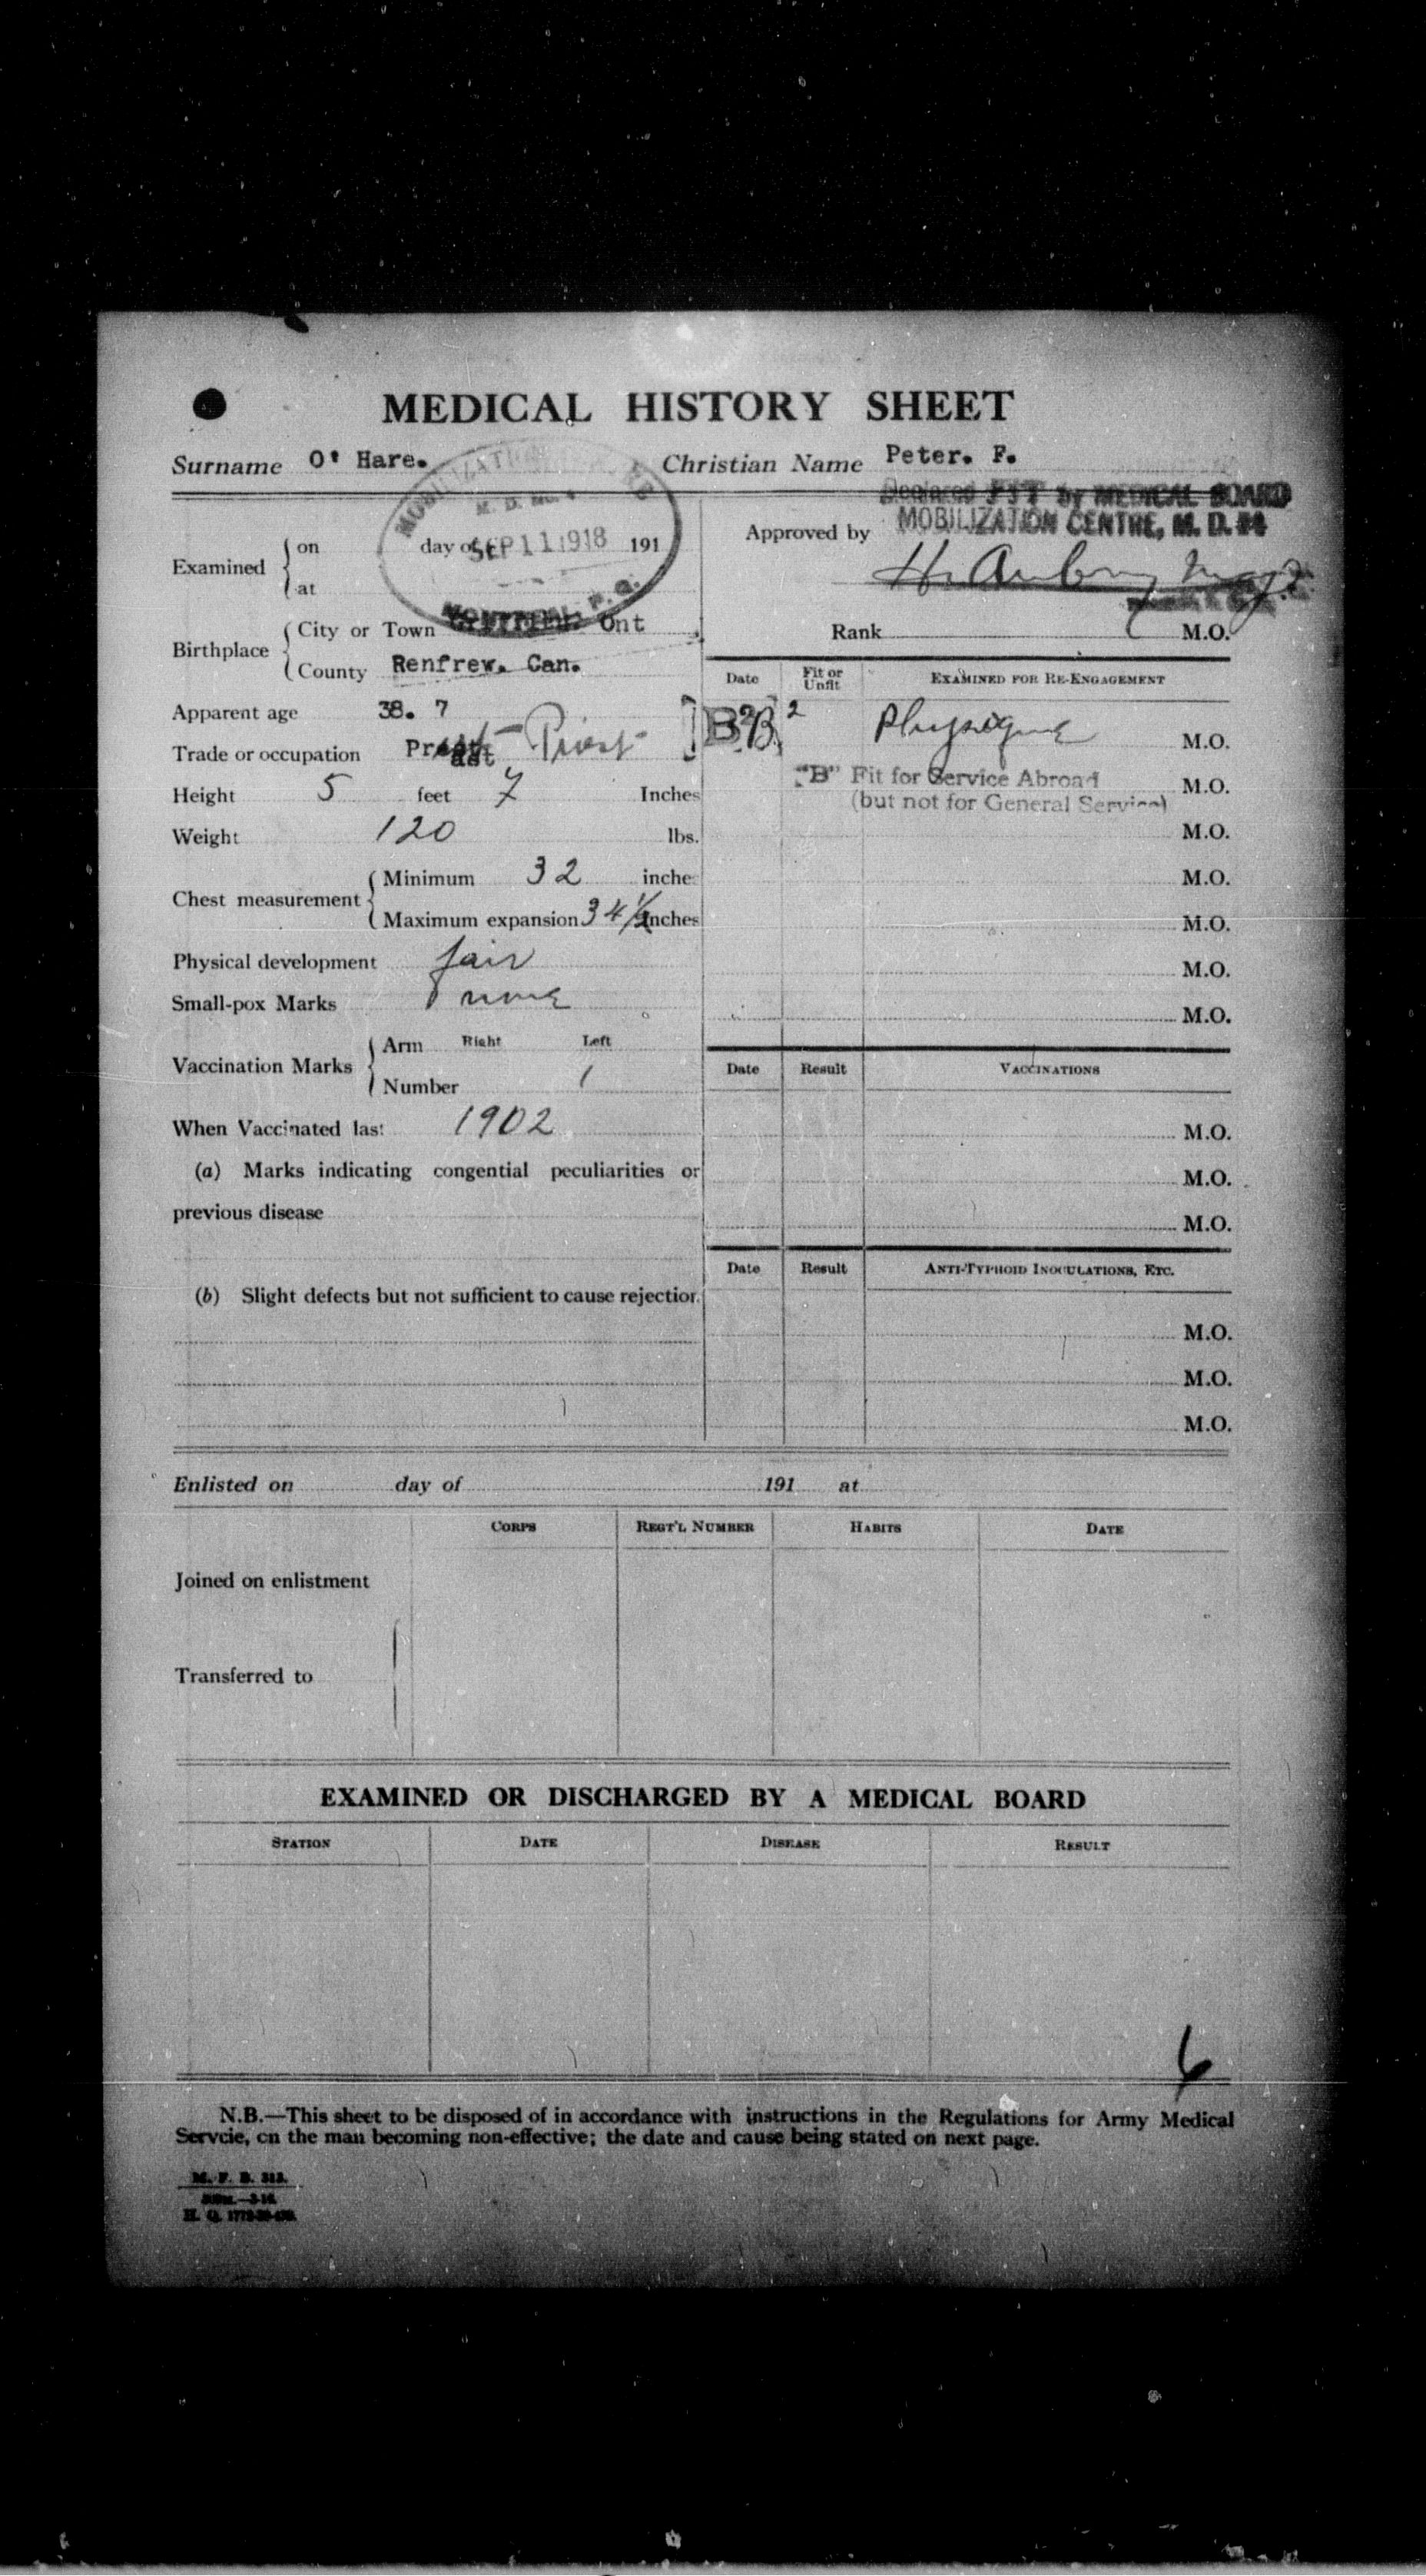 MEDICAL HISTORY SHEET
Surname O' Hare. Christian Name Peter. F.
Declared FIT by MEDICAL BOARD
MOBILIZATION CENTRE, M. D. #4
Approved by
MOBILIZATION
M. D. No. 4
Examined { on day of SEP 11 1918 191
at
MONTREAL, P. Q.
Rank M.O.
Birthplace { City or Town Ont
County Renfrew. Can.
Date Fit or Unfit EXAMINED FOR RE-ENGAGEMENT
Apparent age 38. 7
B2 B2 Physique M.O.
Trade or occupation Priest
"B" Fit for Service Abroad M.O.
(but not for General Service)
Height 5 feet 7 Inches
Weight 120 lbs.
M.O.
Chest measurement { Minimum 32 inche
M.O.
Maximum expansion 34 1/2 inches
M.O.
Physical development fair
M.O.
Small-pox Marks none
M.O.
Vaccination Marks { Arm Right Left
Number 1
Date Result VACCINATIONS
When Vaccinated last 1902
M.O.
(a) Marks indicating congential peculiarities or
M.O.
previous disease
M.O.
Date Result ANTI-TYPHOID INOCULATIONS, ETC.
(b) Slight defects but not sufficient to cause rejection
M.O.
M.O.
M.O.
Enlisted on day of 191 at
CORPS REGT'L NUMBER HABITS DATE
Joined on enlistment
Transferred to
EXAMINED OR DISCHARGED BY A MEDICAL BOARD
STATION DATE DISEASE RESULT
6
N.B.—This sheet to be disposed of in accordance with instructions in the Regulations for Army Medical
Servcie, on the man becoming non-effective; the date and cause being stated on next page.
M. F. B. 313.